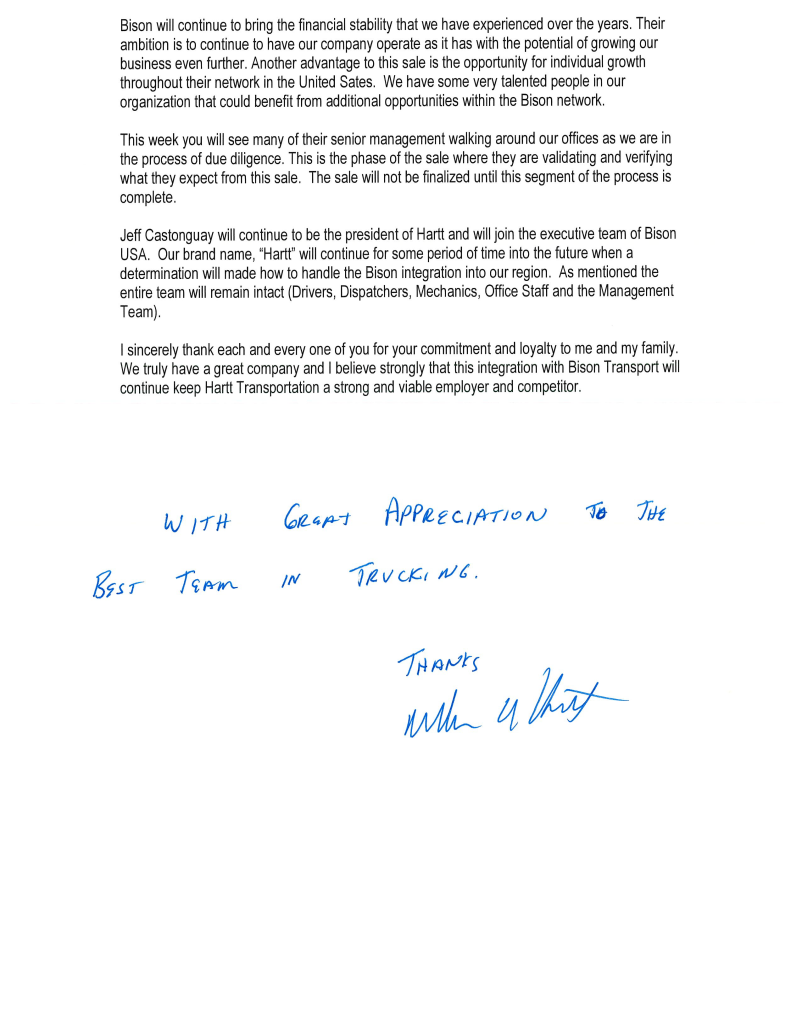 Bison will continue to bring the financial stability that we have experienced over the years. Their
ambition is to continue to have our company operate as it has with the potential of growing our
business even further. Another advantage to this sale is the opportunity for individual growth
throughout their network in the United Sates.  We have some very talented people in our
organization that could benefit from additional opportunities within the Bison network.
This week you will see many of their senior management walking around our offices as we are in
the process of due diligence. This is the phase of the sale where they are validating and verifying
what they expect from this sale.  The sale will not be finalized until this segment of the process is
complete.
Jeff Castonguay will continue to be the president of Hartt and will join the executive team of Bison
USA.  Our brand name, “Hartt” will continue for some period of time into the future when a
determination will made how to handle the Bison integration into our region.  As mentioned the
entire team will remain intact (Drivers, Dispatchers, Mechanics, Office Staff and the Management
Team).
I sincerely thank each and every one of you for your commitment and loyalty to me and my family.
We truly have a great company and I believe strongly that this integration with Bison Transport will
continue keep Hartt Transportation a strong and viable employer and competitor.
WITH GREAT APPRECIATION TO THE
BEST TEAM IN TRUCKING.
THANKS